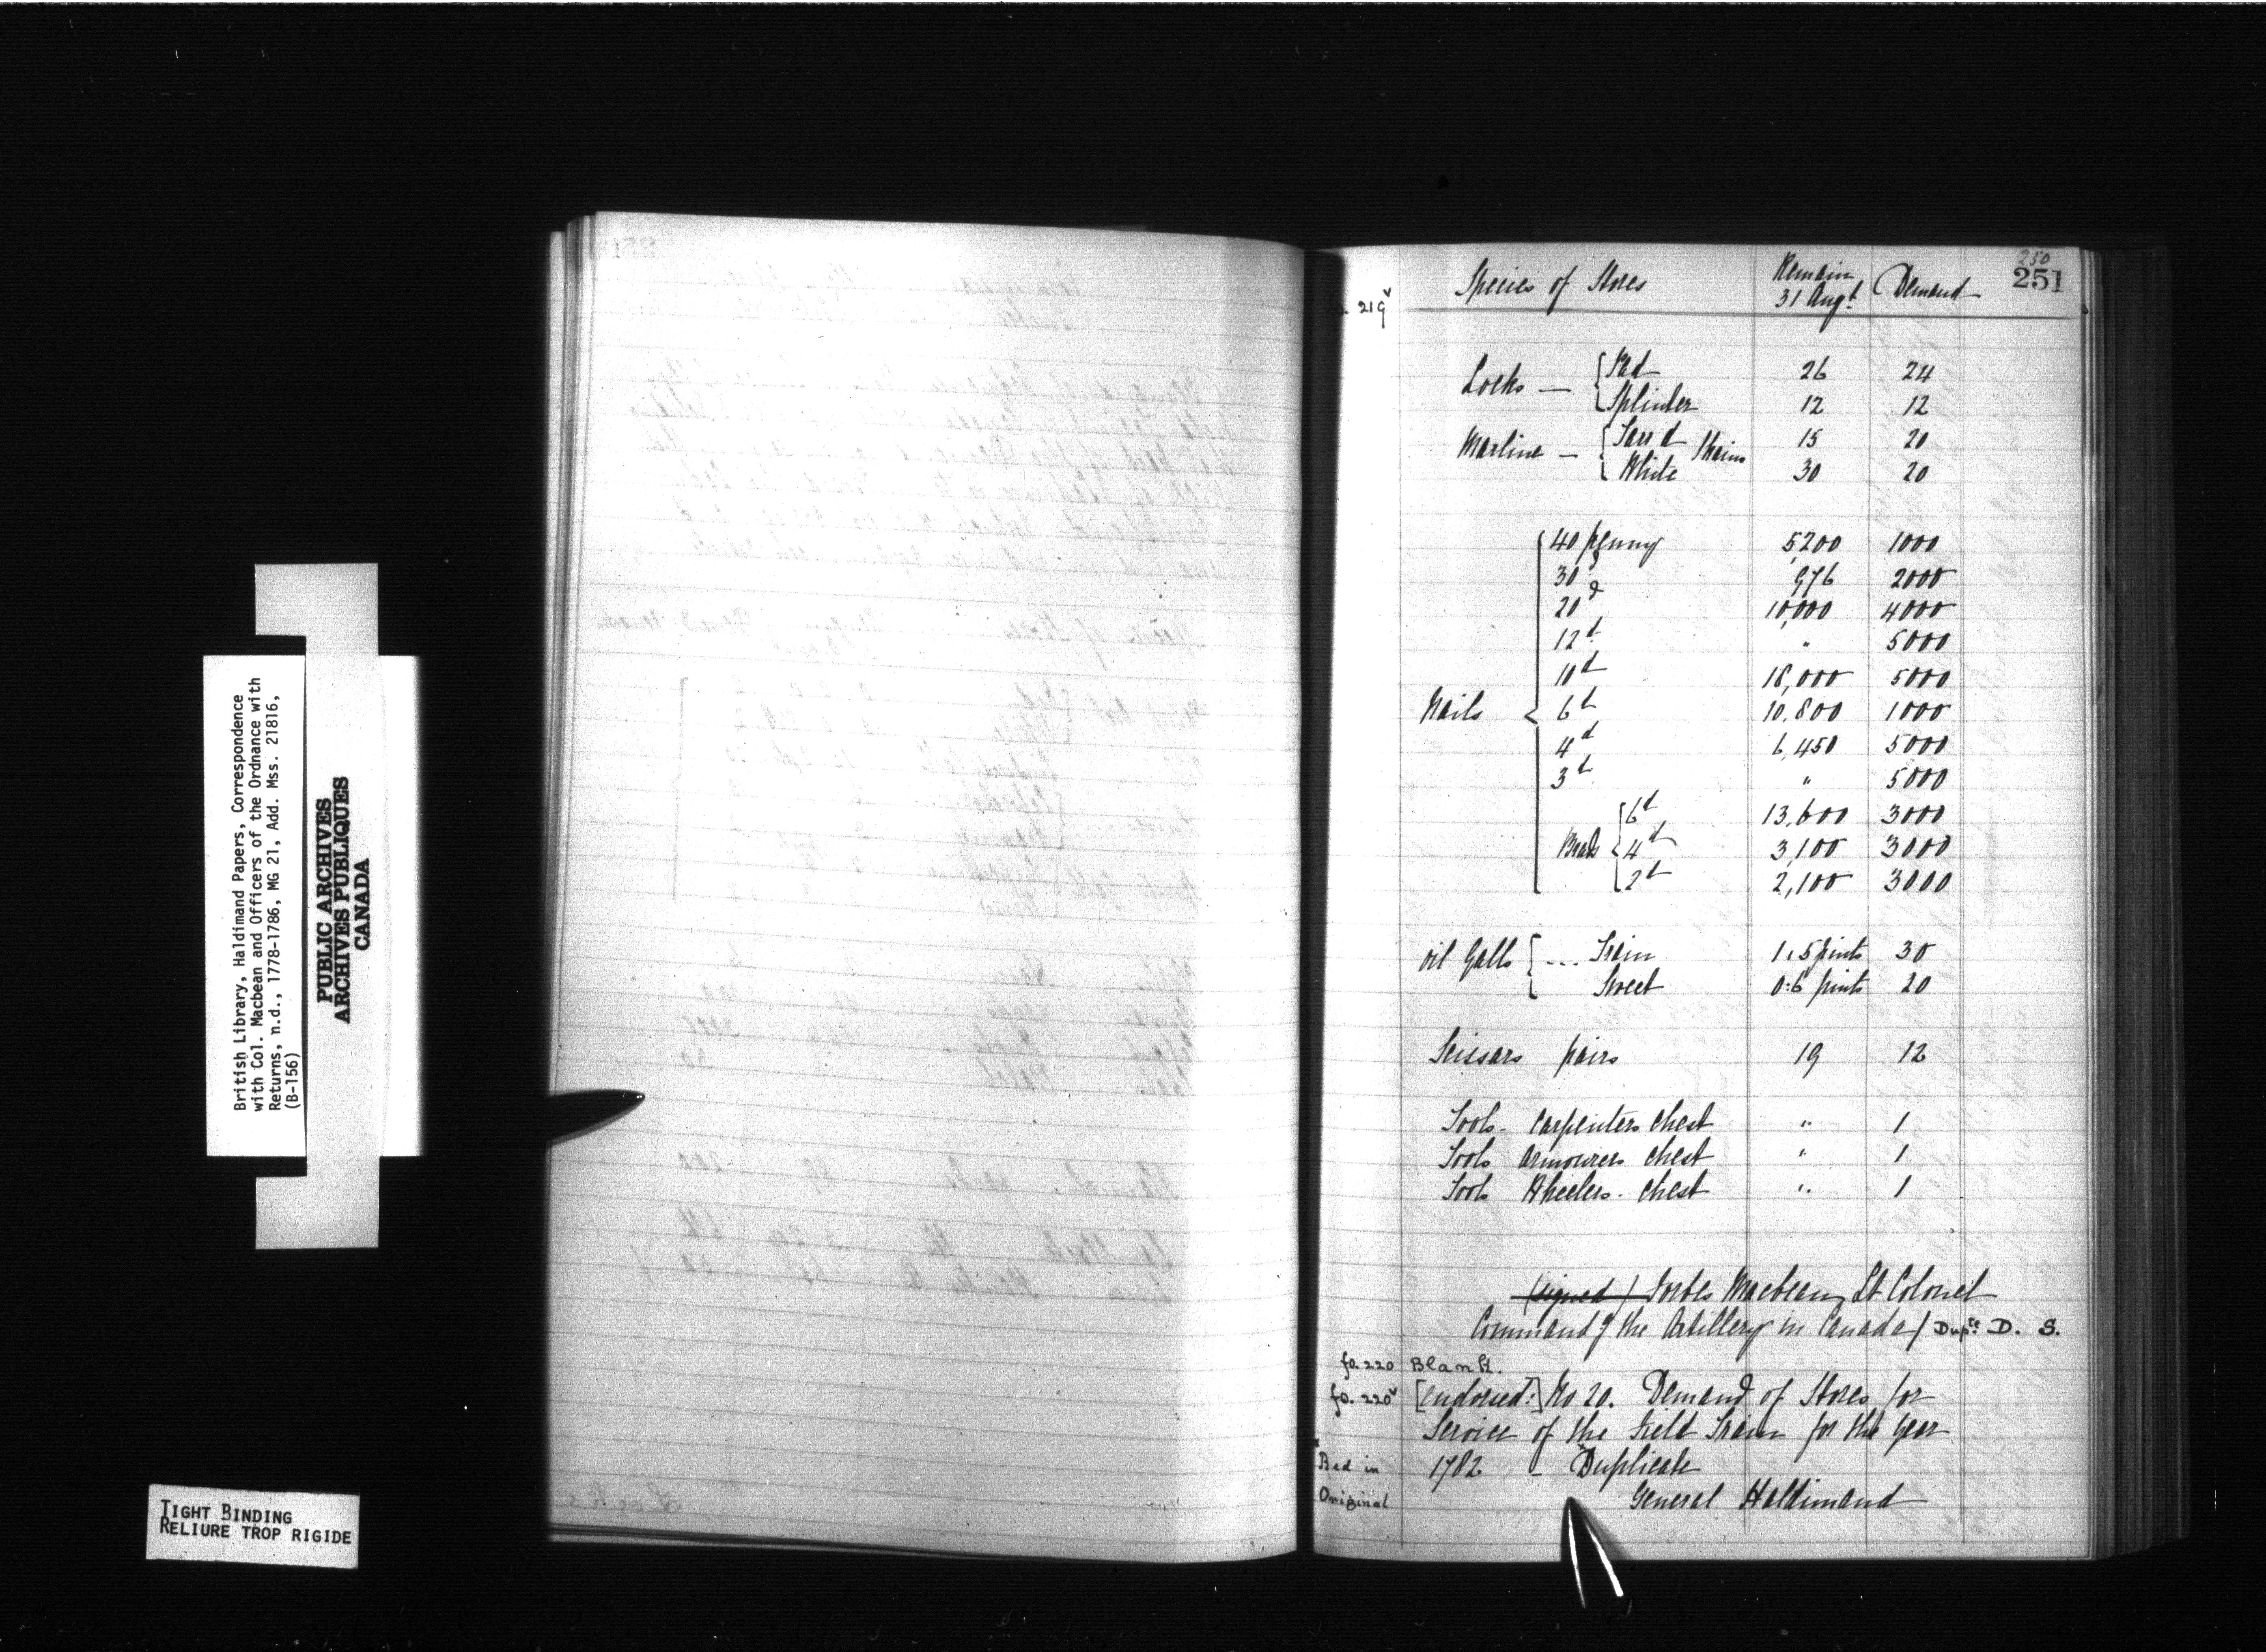 British Library, Haldimand Papers, Correspondence
with Col. Macbean and Officers of the Ordnance with
Returns, n.d., 1778-1786, MG 21, Add. Mss. 21816,
(B-156)
PUBLIC ARCHIVES
ARCHIVES PUBLIQUES
CANADA
TIGHT BINDING
RELIURE TROP RIGIDE
250
251
fo. 219v
Species of Stores Remain 31 Augt. Demand
Locks — { Pad 26 24
Splinter 12 12
Marline — { Tarrd Skains 15 20
White 30 20
Nails { 40 penny 5,200 1000
30 d 976 2000
20 d 10,000 4000
12 d " 5000
10 d 18,000 5000
6 d 10,800 1000
4 d 6,450 5000
3 d " 5000
Brads { 6 d 13,600 3000
4 d 3,100 3000
2 d 2,100 3000
Oil Galls { ... Train 1.5 pints 30
Sweet 0:6 pints 20
Scissars pairs 19 12
Tools - Carpenters Chest " 1
Tools Armourers Chest " 1
Tools Wheelers. Chest " 1
(signed) Forbes Macbean Lt Colonel
Commandg the Artillery in Canada / Dupte. D. S.
fo. 220 Blank.
fo. 220v [endorsed:] No 20. Demand of Stores for
Service of the Field Train for the Year
1782 - Duplicate
Red in
Original
General Haldimand